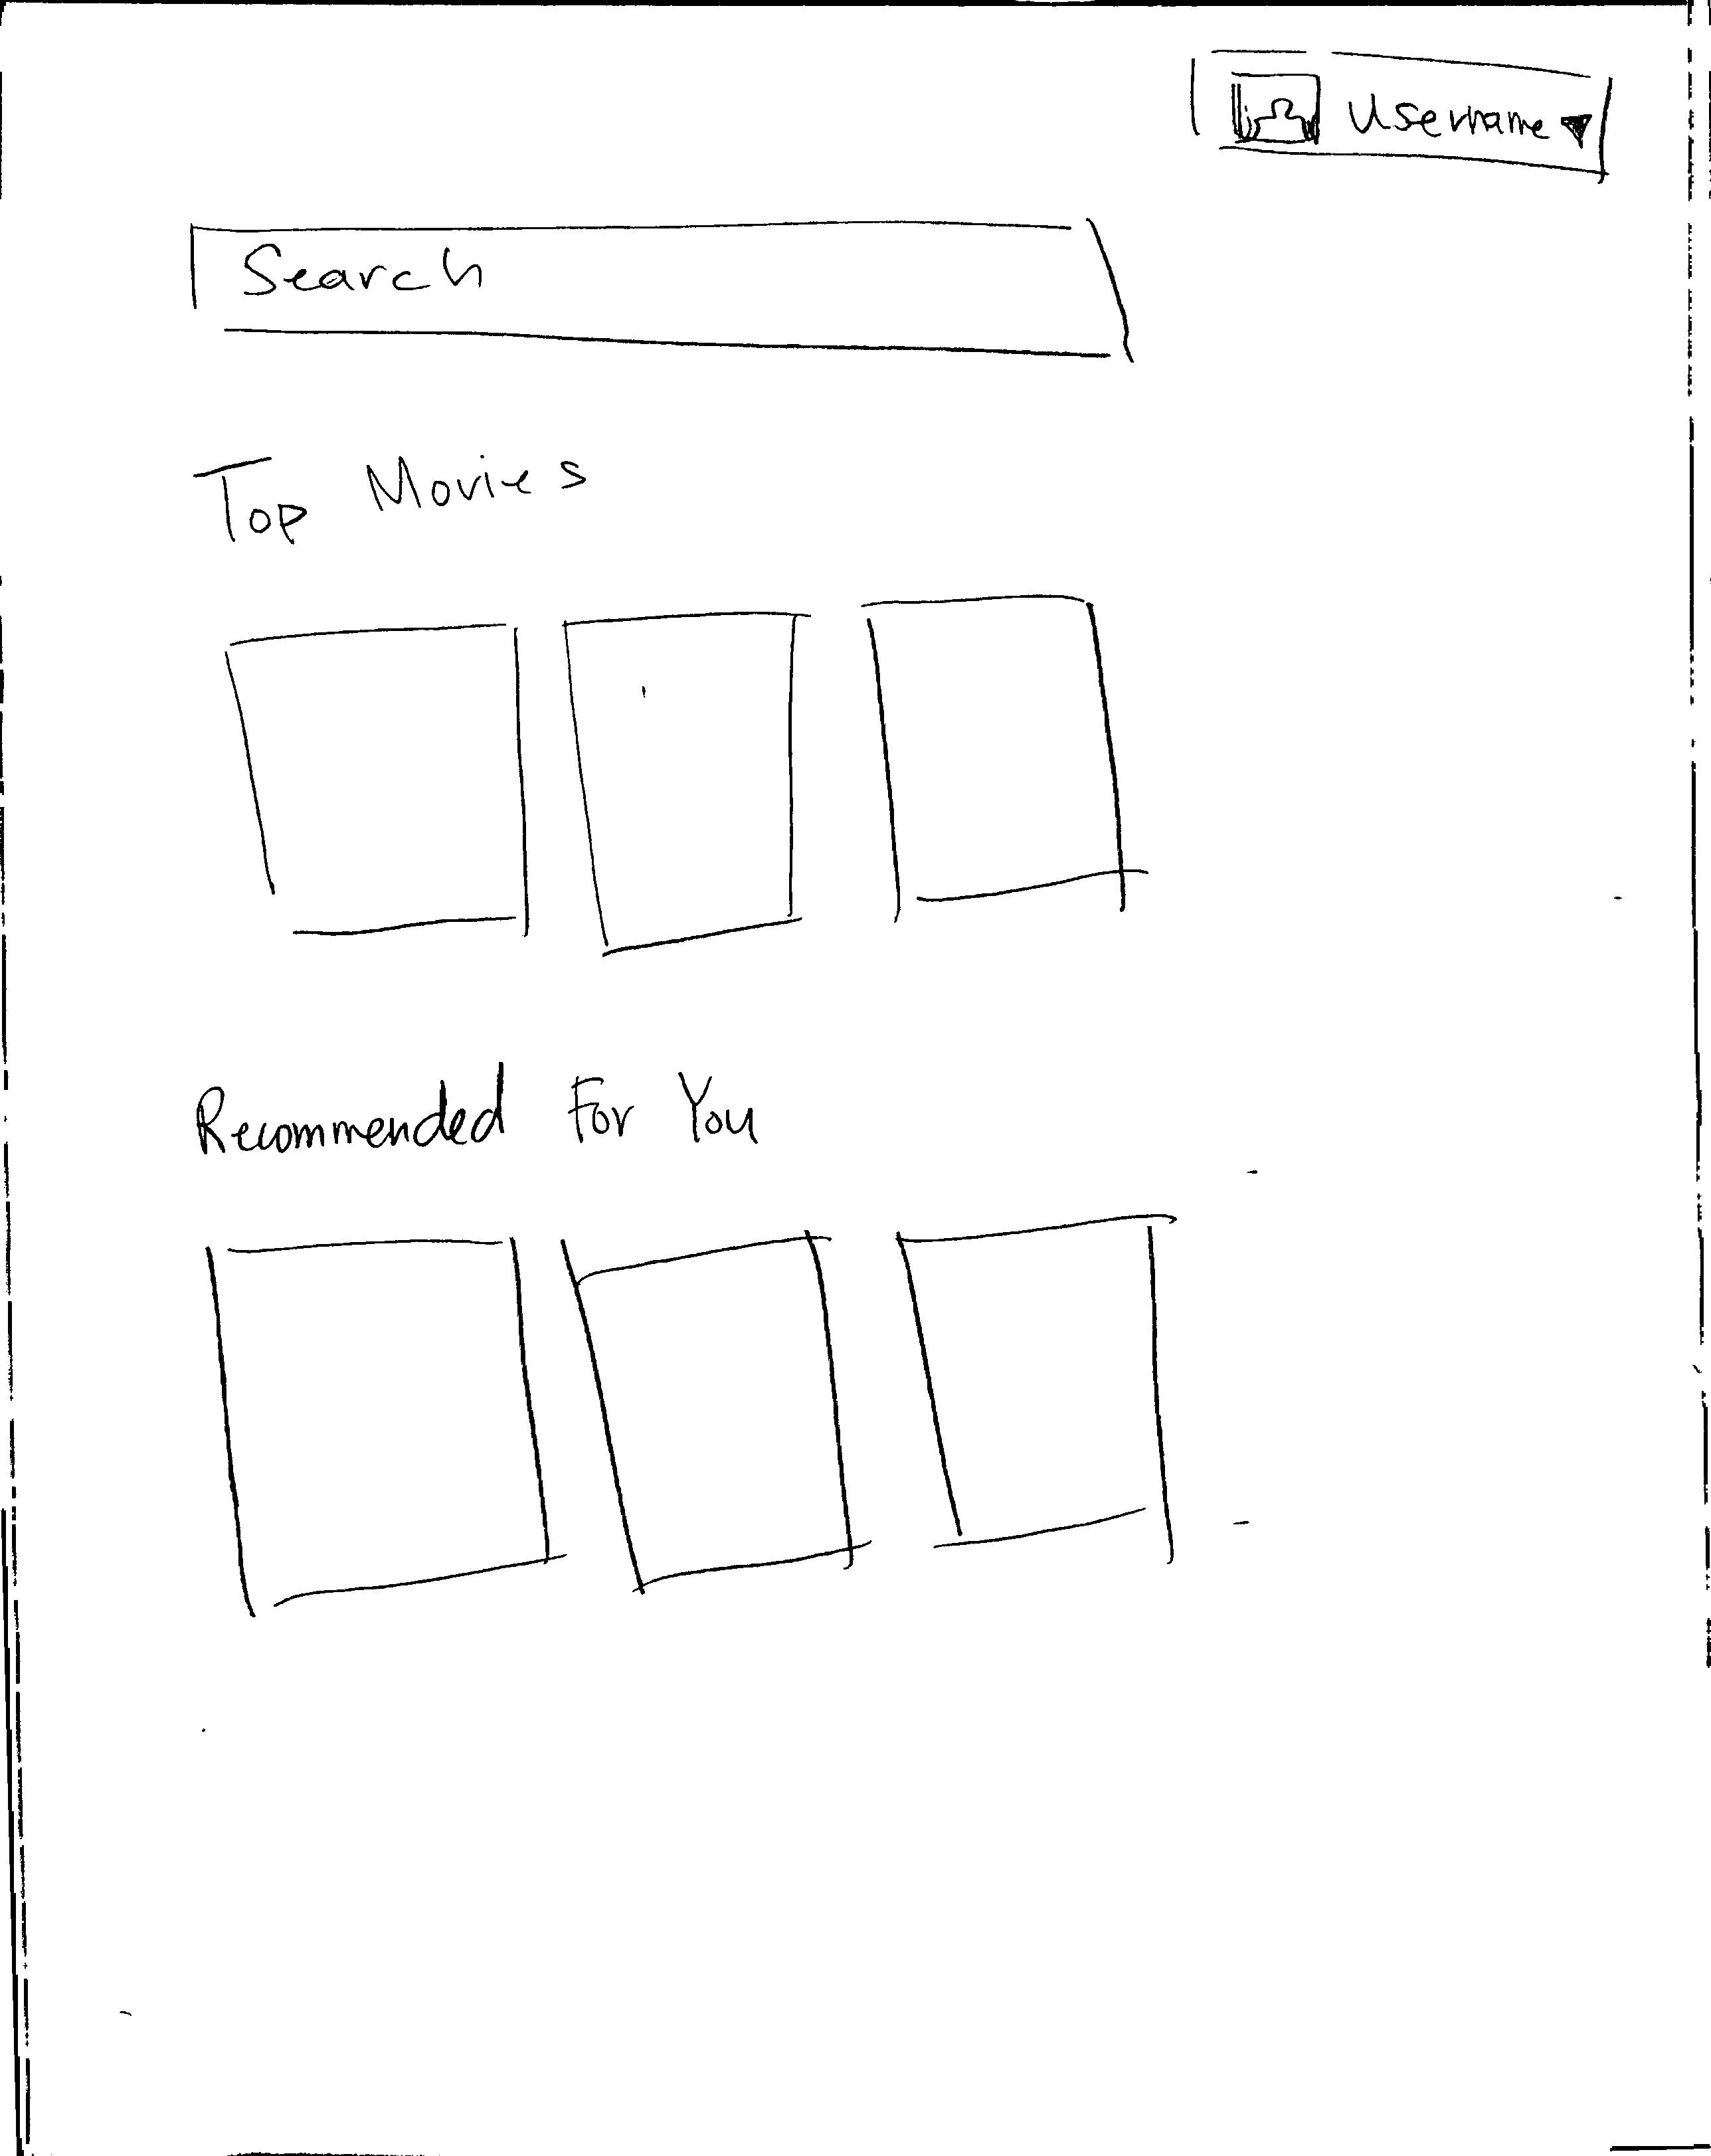 Username
Search
Top Movies
Recommended For You